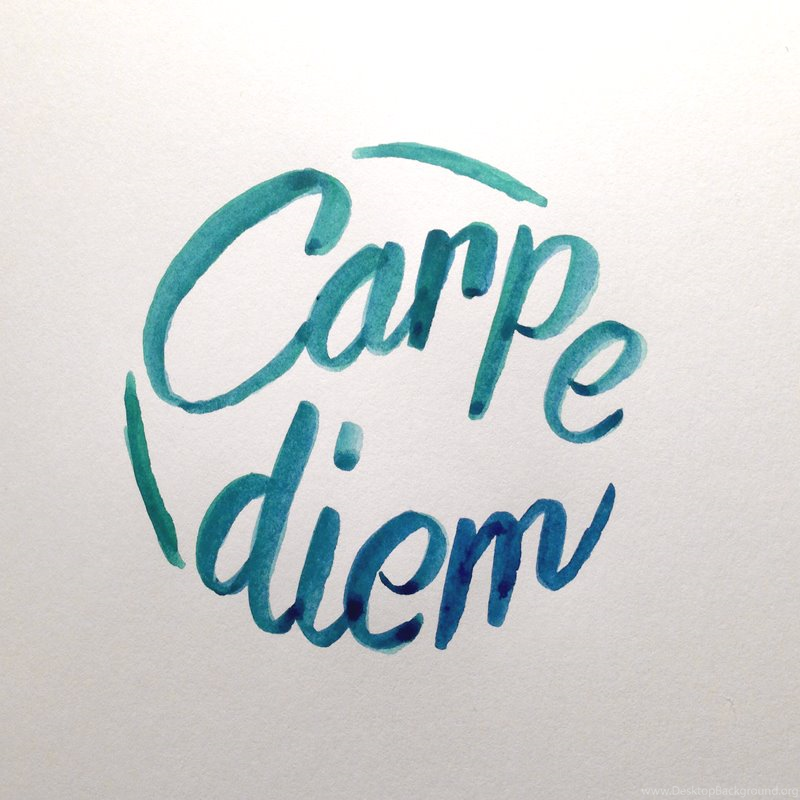 Carpe
diem
www.DesktopBackground.org